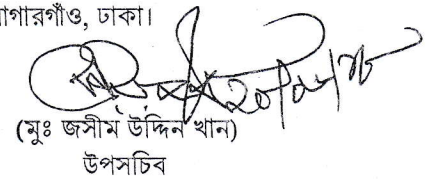 গারগাঁও, ঢাকা।
(মুঃ জসীম উদ্দিন খান)
উপসচিব